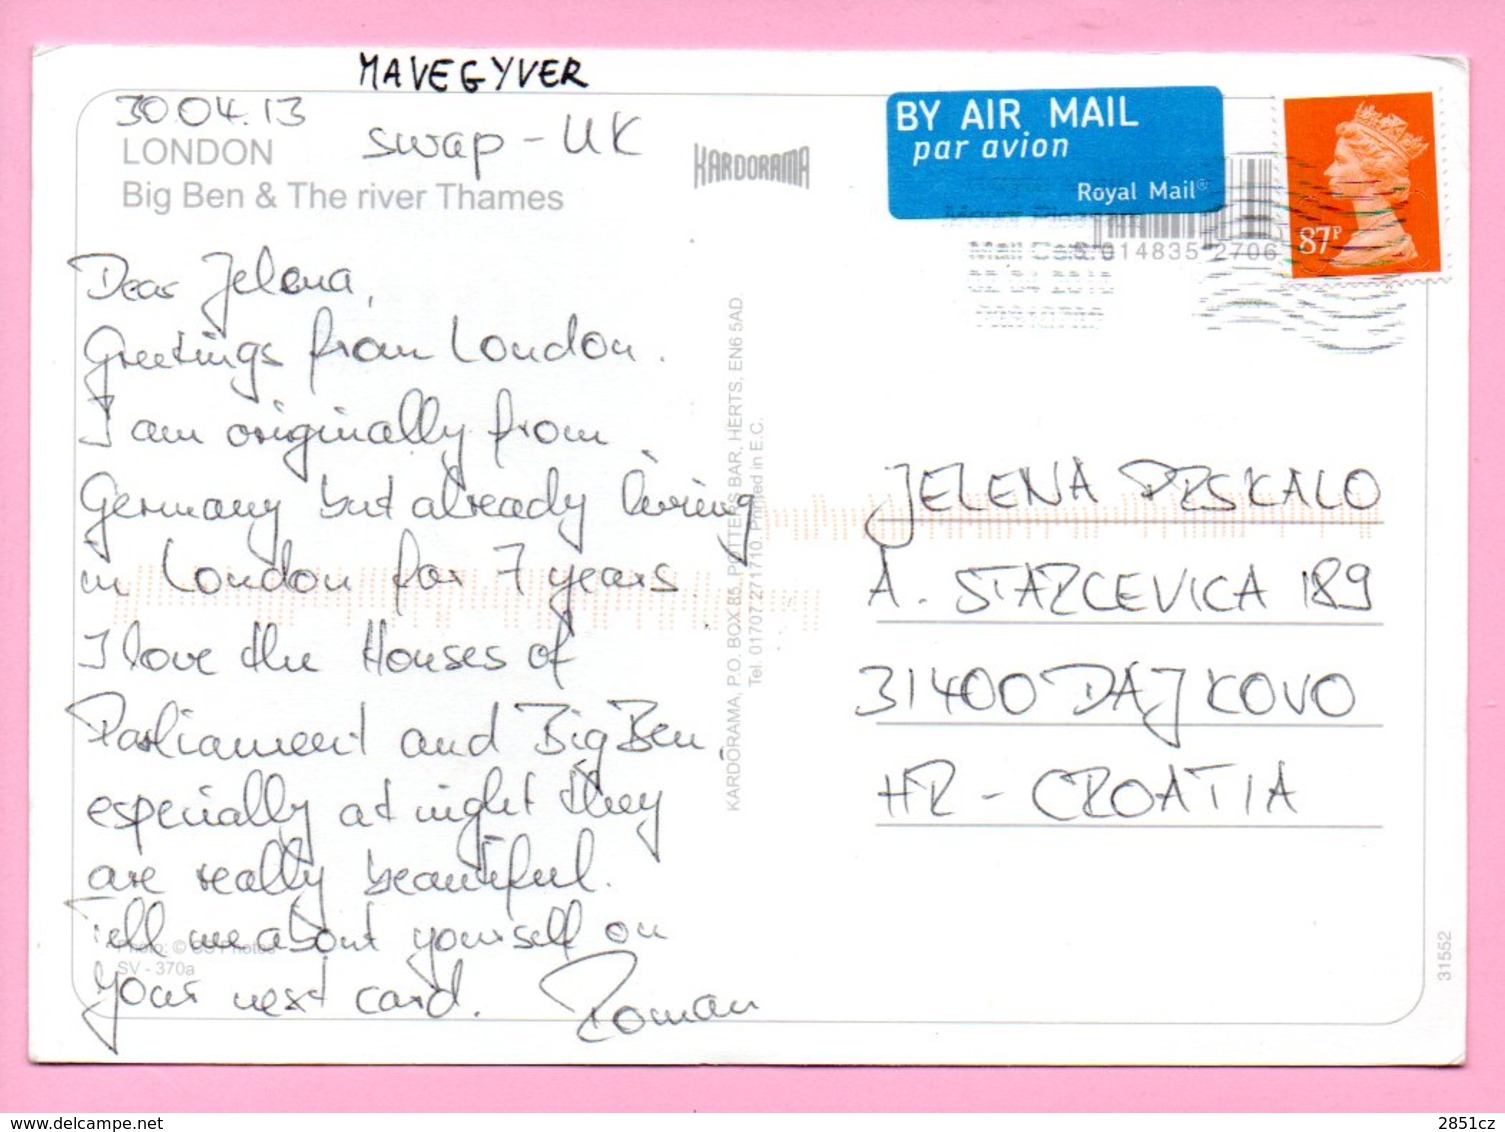 MAVEGYVER
30.04.13
swap - UK
LONDON
Big Ben & The river Thames
KARDORAMA
BY AIR MAIL
par avion
Royal Mail®
87P
Dear Jelena,
Greetings from London.
I am originally from
Germany but already living
in London for 7 years.
I love the Houses of
Parliament and Big Ben,
especially at night they
are really beautiful.
Tell me about yourself on
your next card. Roman
Photo: ©
SV - 370a
KARDORAMA, P.O. BOX 85, POTTERS BAR, HERTS, EN6 5AD.
Tel. 01707 271710. Printed in E.C.
JELENA PESKALO
A. STARCEVICA 189
31400 DAJKOVO
HR - CROATIA
31552
www.delcampe.net
2851cz